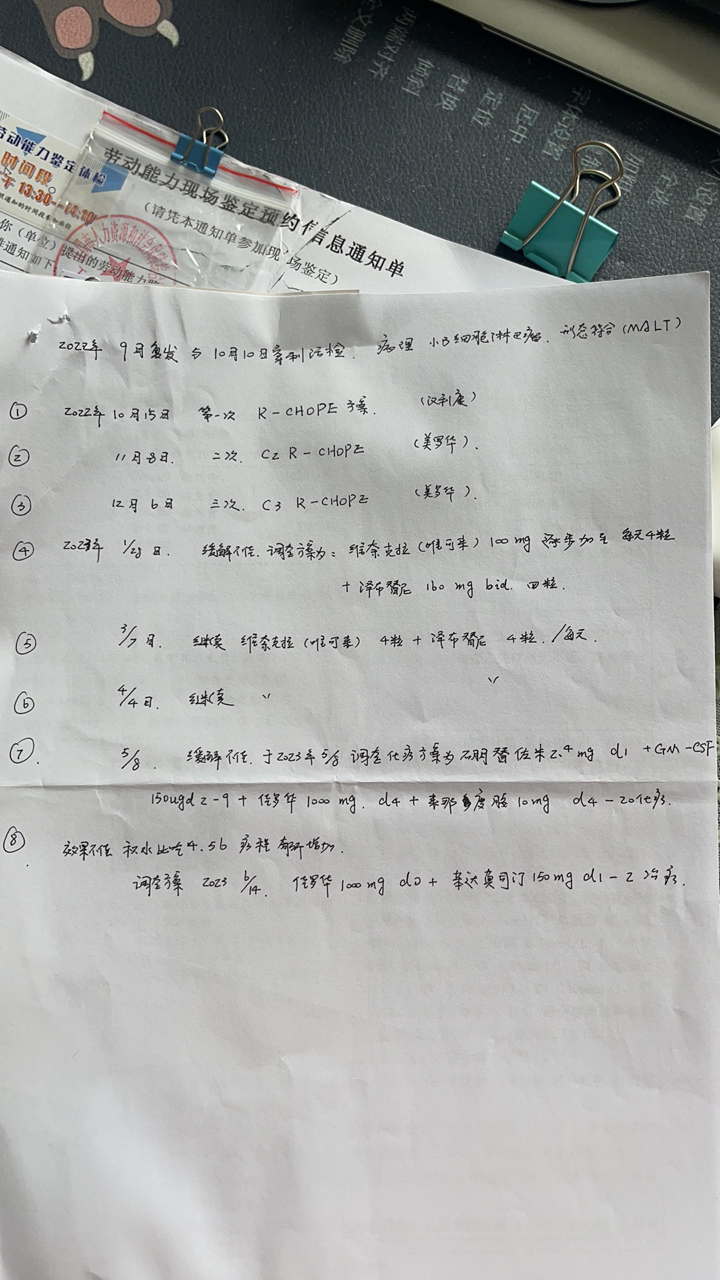 文又删除
两端对齐
倾斜
替换
定位
居中
字体设置
劳动能力鉴定体检
时间段
午 13:30-14:30
劳动能力现场鉴定预约信息通知单
(请凭本通知单参加现场鉴定)
你(单位)提出的劳动能力
通知如下
2022年 9月复发 与10月10日穿刺活检. 病理 小B细胞淋巴瘤. 形态符合(MALT)
① 2022年10月15日 第一次 R-CHOPE 方案. (汉利康)
② 11月8日. 二次. C2 R-CHOPE (美罗华).
③ 12月6日 三次. C3 R-CHOPE (美罗华).
④ 2023年 1/28日. 缓解不佳. 调整方案为: 维奈克拉(唯可来)100mg 逐步加至 每天4粒
+ 泽布替尼 160mg bid. 四粒.
⑤ 3/7日. 继续 维奈克拉(唯可来) 4粒 + 泽布替尼 4粒./每天.
⑥ 4/4日. 继续 〃 〃
⑦. 5/8. 缓解不佳. 于2023年5/8 调整化疗方案为 硼替佐米2.4mg d1 +GM-CSF
150ugd2-9 + 佳罗华 1000mg. d4 + 来那度胺10mg d4-20化疗.
⑧. 效果不佳 积水 4.56 病程 有所增加.
调整方案 2023 6/14. 佳罗华1000mg d0 + 苯达莫司汀150mg d1-2 治疗.